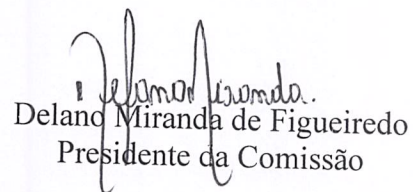 Delano Miranda.
Delano Miranda de Figueiredo
Presidente da Comissão